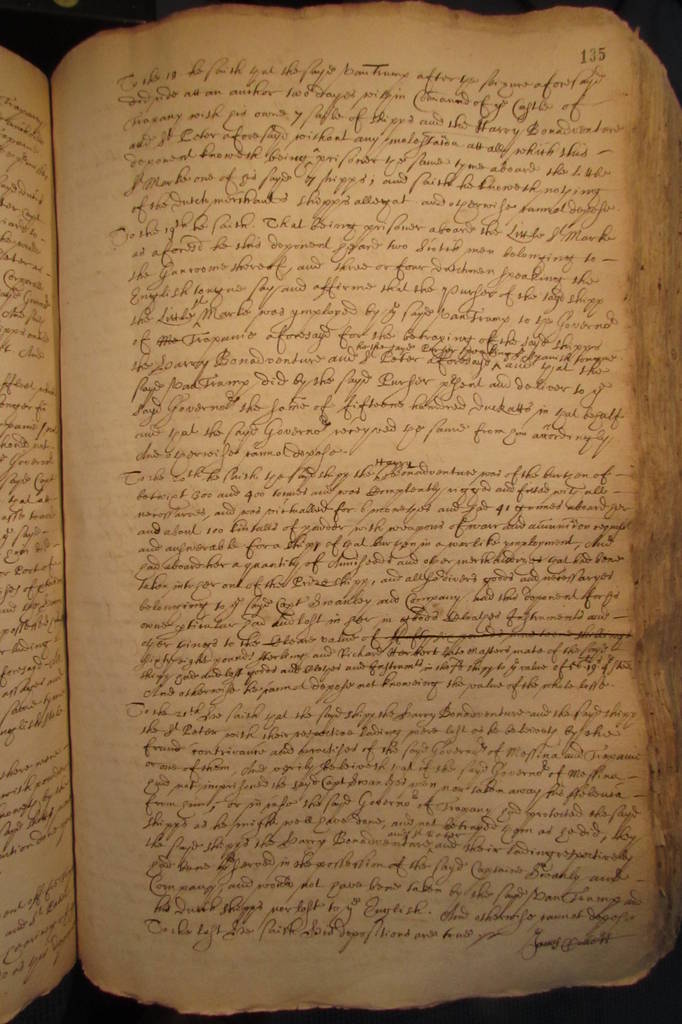 135
To the 18 he saith that the sayd Van Trump after the seizure aforesayd
did ride att an anchor two dayes within Comand of the Castle of
Trapany with his owne 7 sayle of shipps and the Harry Bonadventure
and St Peter aforesayd without any molestation att all, which this
deponent knoweth being prisoner the same tyme aboard the little
St Marke one of his sayd 7 shipps; and saith he knoweth nothing
of the dutch merchants shipps allegat. and otherwise cannot depose.
To the 19th he saith. That being prisoner aboard the Little St Marke
as aforesd he this deponent heard two dutch men belonging to
the Gunroome thereof, and three or four dutchmen speaking the
English tongue say and affirme that the Purser of the sayd shipp
the Little St Marke was ymployed by ye sayd Van Trump to the Governor
of the Trapanie aforesayd for the betraying of the sayd shipps
the Harry Bonadventure and St Peter aforesayd (the sayd Purser speaking Spanish tongue) and that the
sayd Van Trump did by the sayd Purser present and deliver to ye
sayd Governor the some of fifteene hundred duckatts in that behalf
and that the sayd Governor receyved the same from him accordingly.
And otherwise cannot depose.
To the 20th he saith the sayd shipp the Harry Bonadventure was of the burthen of
betwixt 300 and 400 tonnes and was competently rigged and fitted with all
necessaries, and was victualled for 6 moneths and had 41 gunnes aboard her
and about 100 kintalls of powder, with weapons of warr and amunition requisite
and answerable for a shipp of that burthen in a warlike ymployment, And
had aboard her a quantity of and other merchandizes that had bene
taken into her out of three Prize shipps, and alsoe divers goods and necessaryes
belonging to ye sayd Capt Swanley and Company. And this deponent for his
owne perticular had and lost in her in goods Cloathes Instruments and
other things to the cleare value of
Eight eight pounds sterling and Richard late Masters mate of the sayd
shipp had and lost goods and Clothes and Instruments in the sd shipp to ye value of
And otherwise he cannot depose not knoweing the value of the whole losse.
To the 21th hee saith that the sayd shipp the Harry Bonadventure and the sayd shipp
the St Peter with their respective ladeing were lost as he beleeveth by the
fraud contrivance and practises of the sayd Governors of Messina and Trapani
or one of them, And verily beleiveth that if the sayd Governor of Messina
had not imprisoned the sayd Capt Swanley nor taken away the
from him, or in case the sayd Governor of Trapany had protected the sayd
shipps as he might well have done, and not betrayed them as he did, they
the sayd shipps the Harry Bonadventure and St Peter and their ladeing respectively
had bene preserved in the possession of the sayd Captaine Swanly and
Company, and would not have bene taken by the sayd Van Trump and
his Dutch shipps nor lost to ye English. And otherwise cannot depose
To the last hee saith his depositions are true